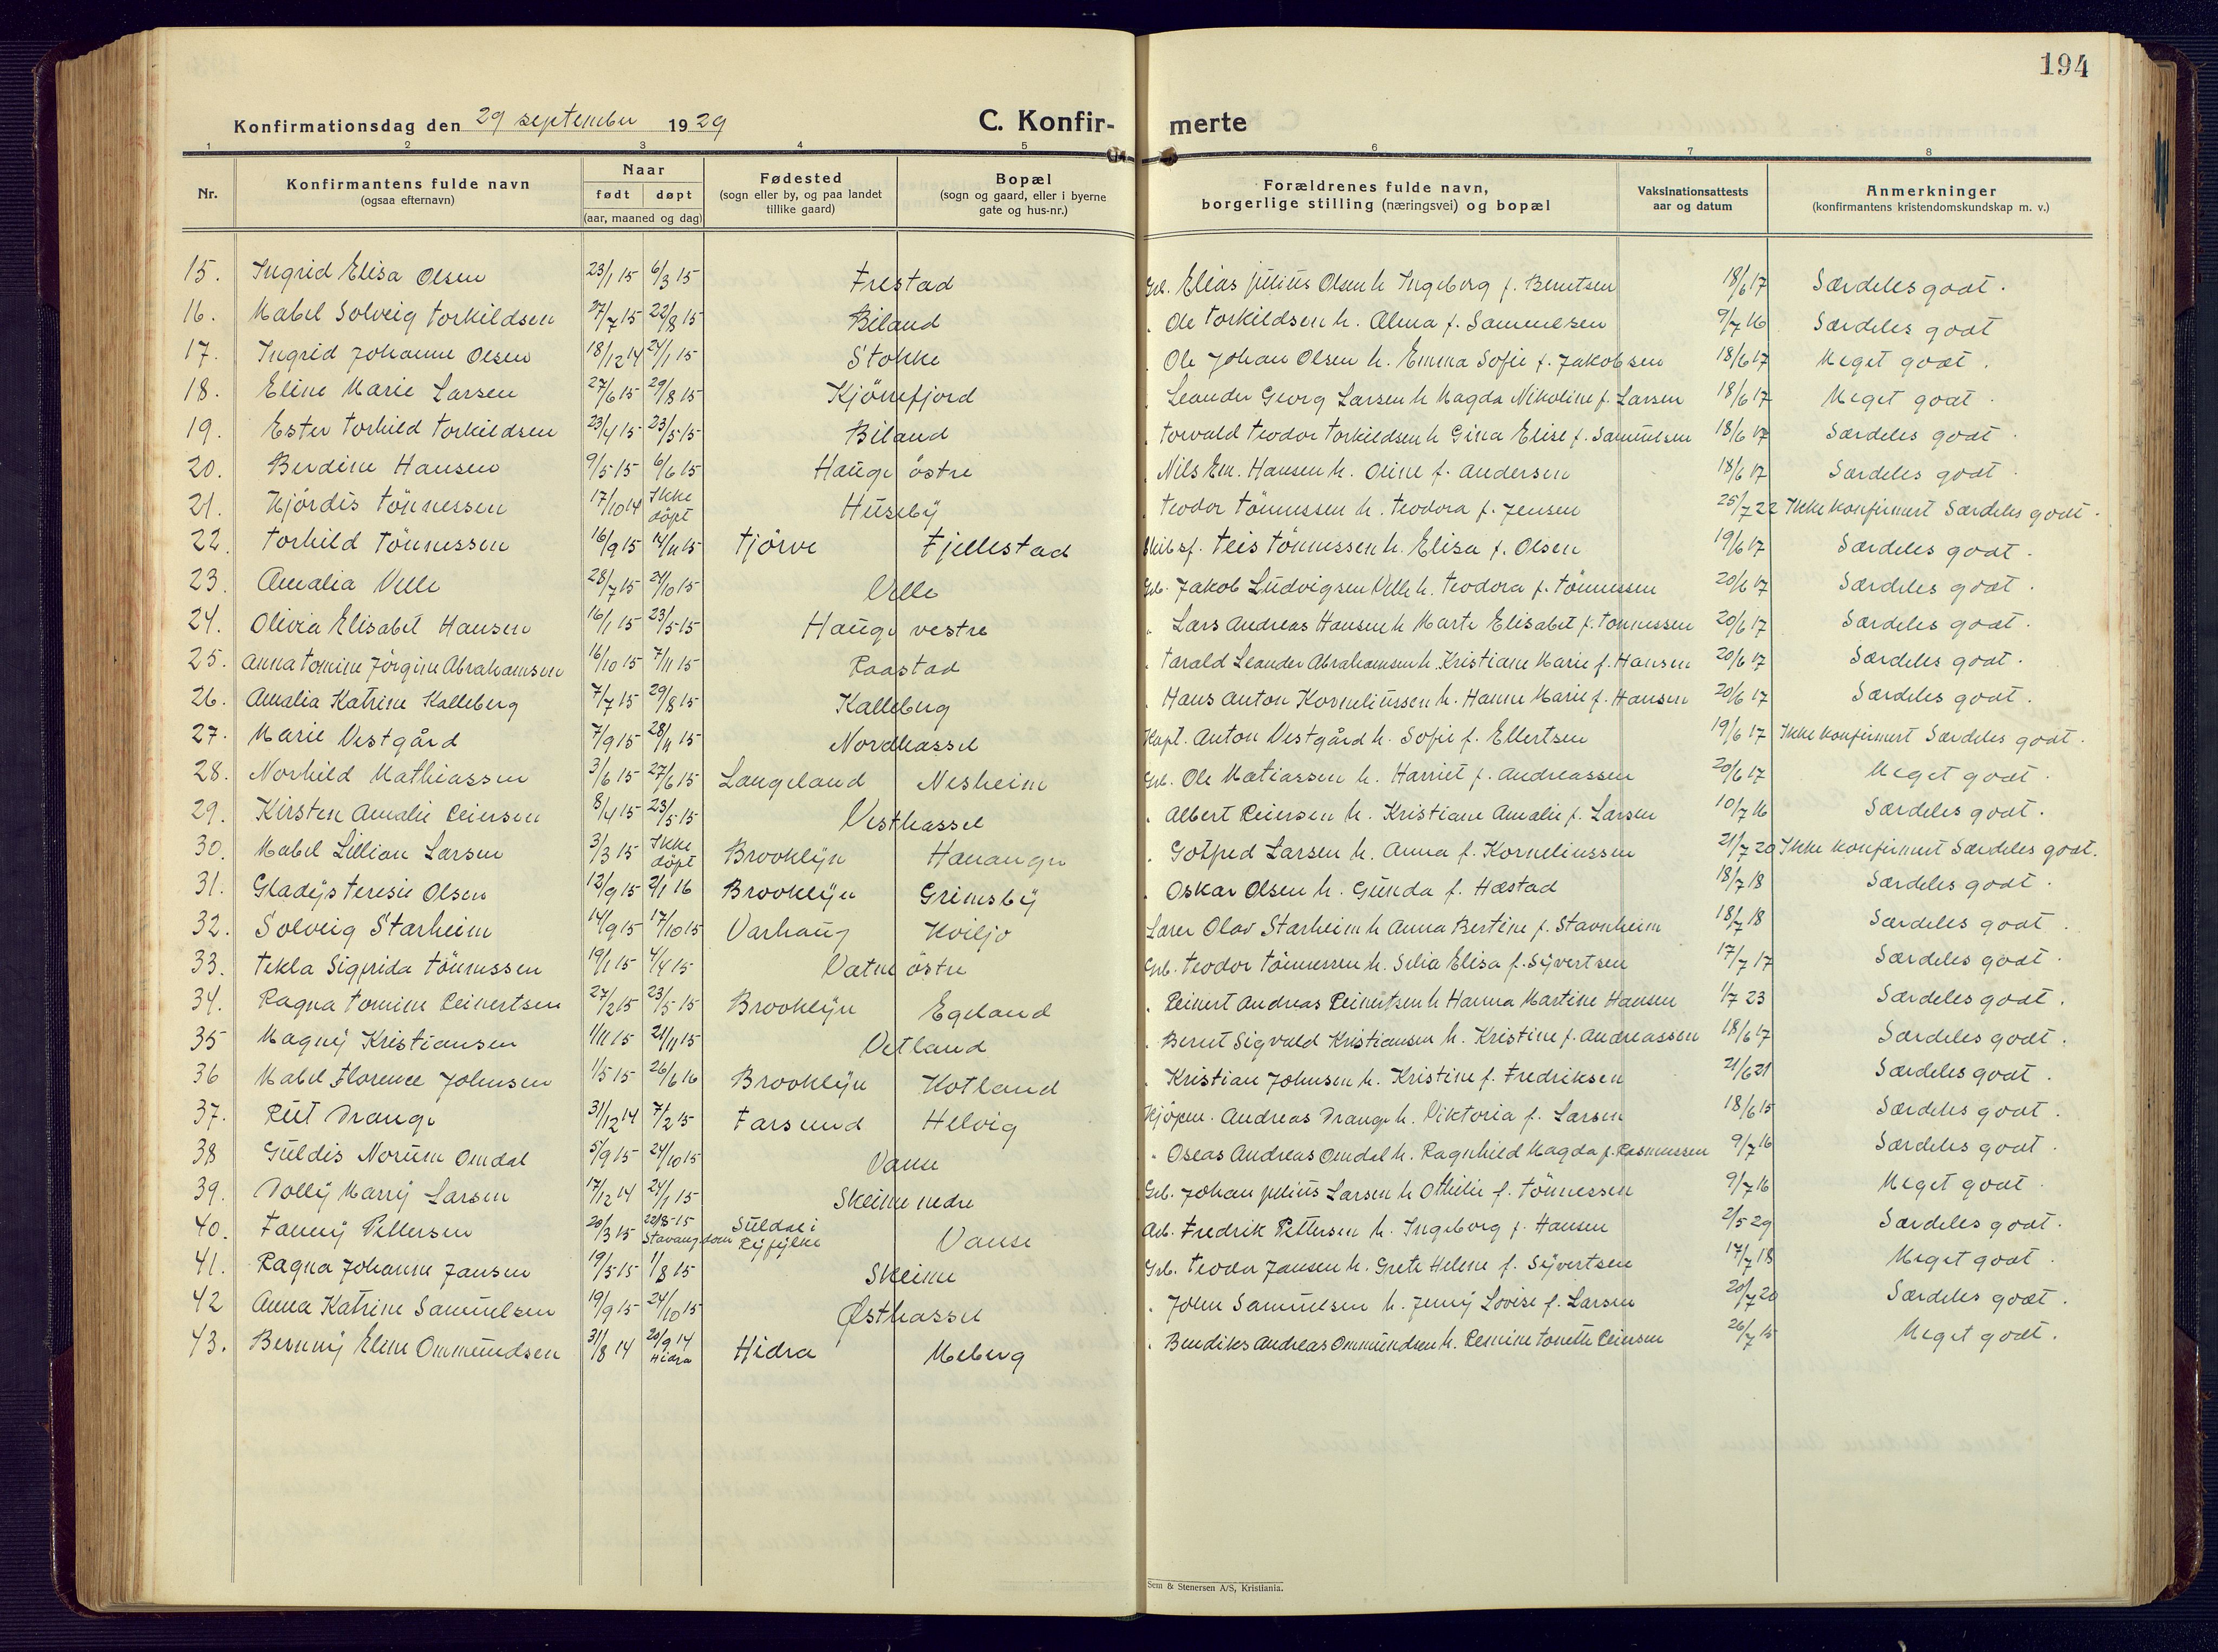 194
Konfirmationsdag den 29 september 1929 C. Konfir- merte
1 2 3 4 5 6 7 8
Nr. Konfirmantens fulde navn (ogsaa efternavn) Naar født døpt (aar, maaned og dag) Fødested (sogn eller by, og paa landet tillike gaard) Bopæl (sogn og gaard, eller i byerne gate og hus-nr.) Forældrenes fulde navn, borgerlige stilling (næringsvei) og bopæl Vaksinationsattests aar og datum Anmerkninger (konfirmantens kristendomskundskap m. v.)
15. Ingrid Elisa Olsen 23/1 15 6/3 15 Frestad Grb. Elias Julius Olsen h. Ingeborg f. Berntsen 18/6 17 Særdeles godt.
16. Mabel Solveig Torkildsen 27/7 15 22/8 15 Biland " Ole Torkildsen h. Alma f. Samuelsen 9/7 16 Særdeles godt
17. Ingrid Johanne Olsen 18/12 14 24/1 15 Stokke " Ole Johan Olsen h. Emma Sofie f. Jakobsen 18/6 17 Meget godt.
18. Eline Marie Larsen 27/6 15 29/8 15 Kjörrefjord " Leander Georg Larsen h Magda Nikoline f. Larsen 18/6 17 Meget godt.
19. Ester Torhild Torkildsen 23/4 15 23/5 15 Biland " Torvald Teodor Torkildsen h Gina Elise f. Samuelsen 18/6 17 Særdeles godt.
20. Berdine Hansen 9/5 15 6/6 15 Hauge östre " Nils Em. Hansen h. Oline f. Andersen 18/6 17 Særdeles godt.
21. Hjördis Tönnessen 17/10 14 Ikke döpt Huseby " Teodor Tönnessen h. Teodora f. Jensen 25/7 22 Ikke konfirmert Særdeles godt.
22. Torhild Tönnessen 16/9 15 14/11 15 Tjörve Fjellestad Skibsf. Teis Tönnessen h. Elisa f. Olsen 19/6 17 Særdeles godt.
23. Amalia Velle 28/7 15 24/10 15 Velle Grb. Jakob Ludvigsen Velle h. Teodora f. Tönnessen 20/6 17 Særdeles godt.
24. Olivia Elisabet Hansen 16/1 15 23/5 15 Hauge vestre " Lars Andreas Hansen h Marte Elisabet f. Tönnessen 20/6 17 Særdeles godt.
25. Anna Tomine Jörgine Abrahamsen 16/10 15 7/11 15 Raastad " Tarald Leander Abrahamsen h. Kristiane Marie f. Hansen 20/6 17 Særdeles godt.
26. Amalia Katrine Kalleberg 7/7 15 29/8 15 Kalleberg " Hans Anton Korneliussen h. Hanne Marie f. Hansen 20/6 17 Særdeles godt.
27. Marie Vestgård 7/9 15 28/11 15 Nordhassel Kapt. Anton Vestgård h. Sofie f. Ellertsen 19/6 17 Ikke konfirmert Særdeles godt.
28. Norhild Mathiassen 3/6 15 27/6 15 Langeland Nesheim Grb. Ole Matiassen h. Harriet f. Andreassen 20/6 17 Meget godt.
29. Kirsten Amalie Reiersen 8/4 15 23/5 15 Vesthassel " Albert Reiersen h. Kristiane Amalie f. Larsen 10/7 16 Særdeles godt.
30. Mabel Lillian Larsen 3/3 15 Ikke döpt Brooklyn Hanangr " Gotfred Larsen h. Anna f. Korneliussen 21/7 20 Ikke konfirmert Særdeles godt.
31. Gladys Teresie Olsen 12/9 15 2/1 16 Brooklyn Grimsby " Oskar Olsen h. Gunda f. Hæstad 18/7 18 Særdeles godt.
32. Solveig Starheim 14/9 15 17/10 15 Varhaug Kviljo Lærer Olav Starheim h Anna Bertine f. Stavnheim 18/7 18 Særdeles godt.
33. Tekla Sigfrida Tönnessen 19/1 15 4/4 15 Vatne östre Grb. Teodor Tönnessen h. Silia Elisa f. Syvertsen 17/7 17 Særdeles godt.
34. Ragna Tomine Reinertsen 27/2 15 23/5 15 Brooklyn Egeland " Reinert Andreas Reinertsen h Hanna Martine Hansen 1/7 23 Særdeles godt.
35 Magny Kristiansen 1/11 15 21/11 15 Vetland " Bernt Sigvald Kristiansen h. Kristine f. Andreassen 18/6 17 Særdeles godt.
36 Mabel Florence Johnsen 1/5 15 26/6 16 Brooklyn Kotland " Kristian Johnsen h. Kristine f. Fredriksen 21/6 21 Særdeles godt.
37. Rut Drange 31/12 14 7/2 15 Farsund Helvig Kjöpm. Andreas Drange h. Viktoria f. Larsen 18/6 15 Særdeles godt.
38 Guldis Norum Omdal 5/9 15 24/10 15 Vanse " Oseas Andreas Omdal h. Ragnhild Magda f. Rasmussen 9/7 16 Særdeles godt.
39. Dolly Marry Larsen 17/12 14 24/1 15 Skeime nedre Grb. Johan Julius Larsen h Othilie f. Tönnessen 9/7 16 Meget godt.
40. Fanny Pettersen 20/3 15 22/8-15 Stavang. dom Suldal i Ryfylke Vanse Arb. Fredrik Pettersen h. Ingeborg f. Hansen 2/5 29 Særdeles godt.
41. Ragna Johanne Jansen 19/5 15 1/8 15 Skeime Grb. Teodor Jansen h. Grete Helene f. Syvertsen 17/7 18 Meget godt.
42 Anna Katrine Samuelsen 19/9 15 24/10 15 Østhassel " John Samuelsen h. Jenny Lovise f. Larsen 20/7 20 Særdeles godt.
43. Bernny Eline Ommundsen 31/8 14 20/9 14 Hidra Hidra Meberg " Bendiks Andreas Ommundsen h. Remine Toneth Reiersen 26/7 15 Meget godt.
Sem & Stenersen A/S, Kristiania.